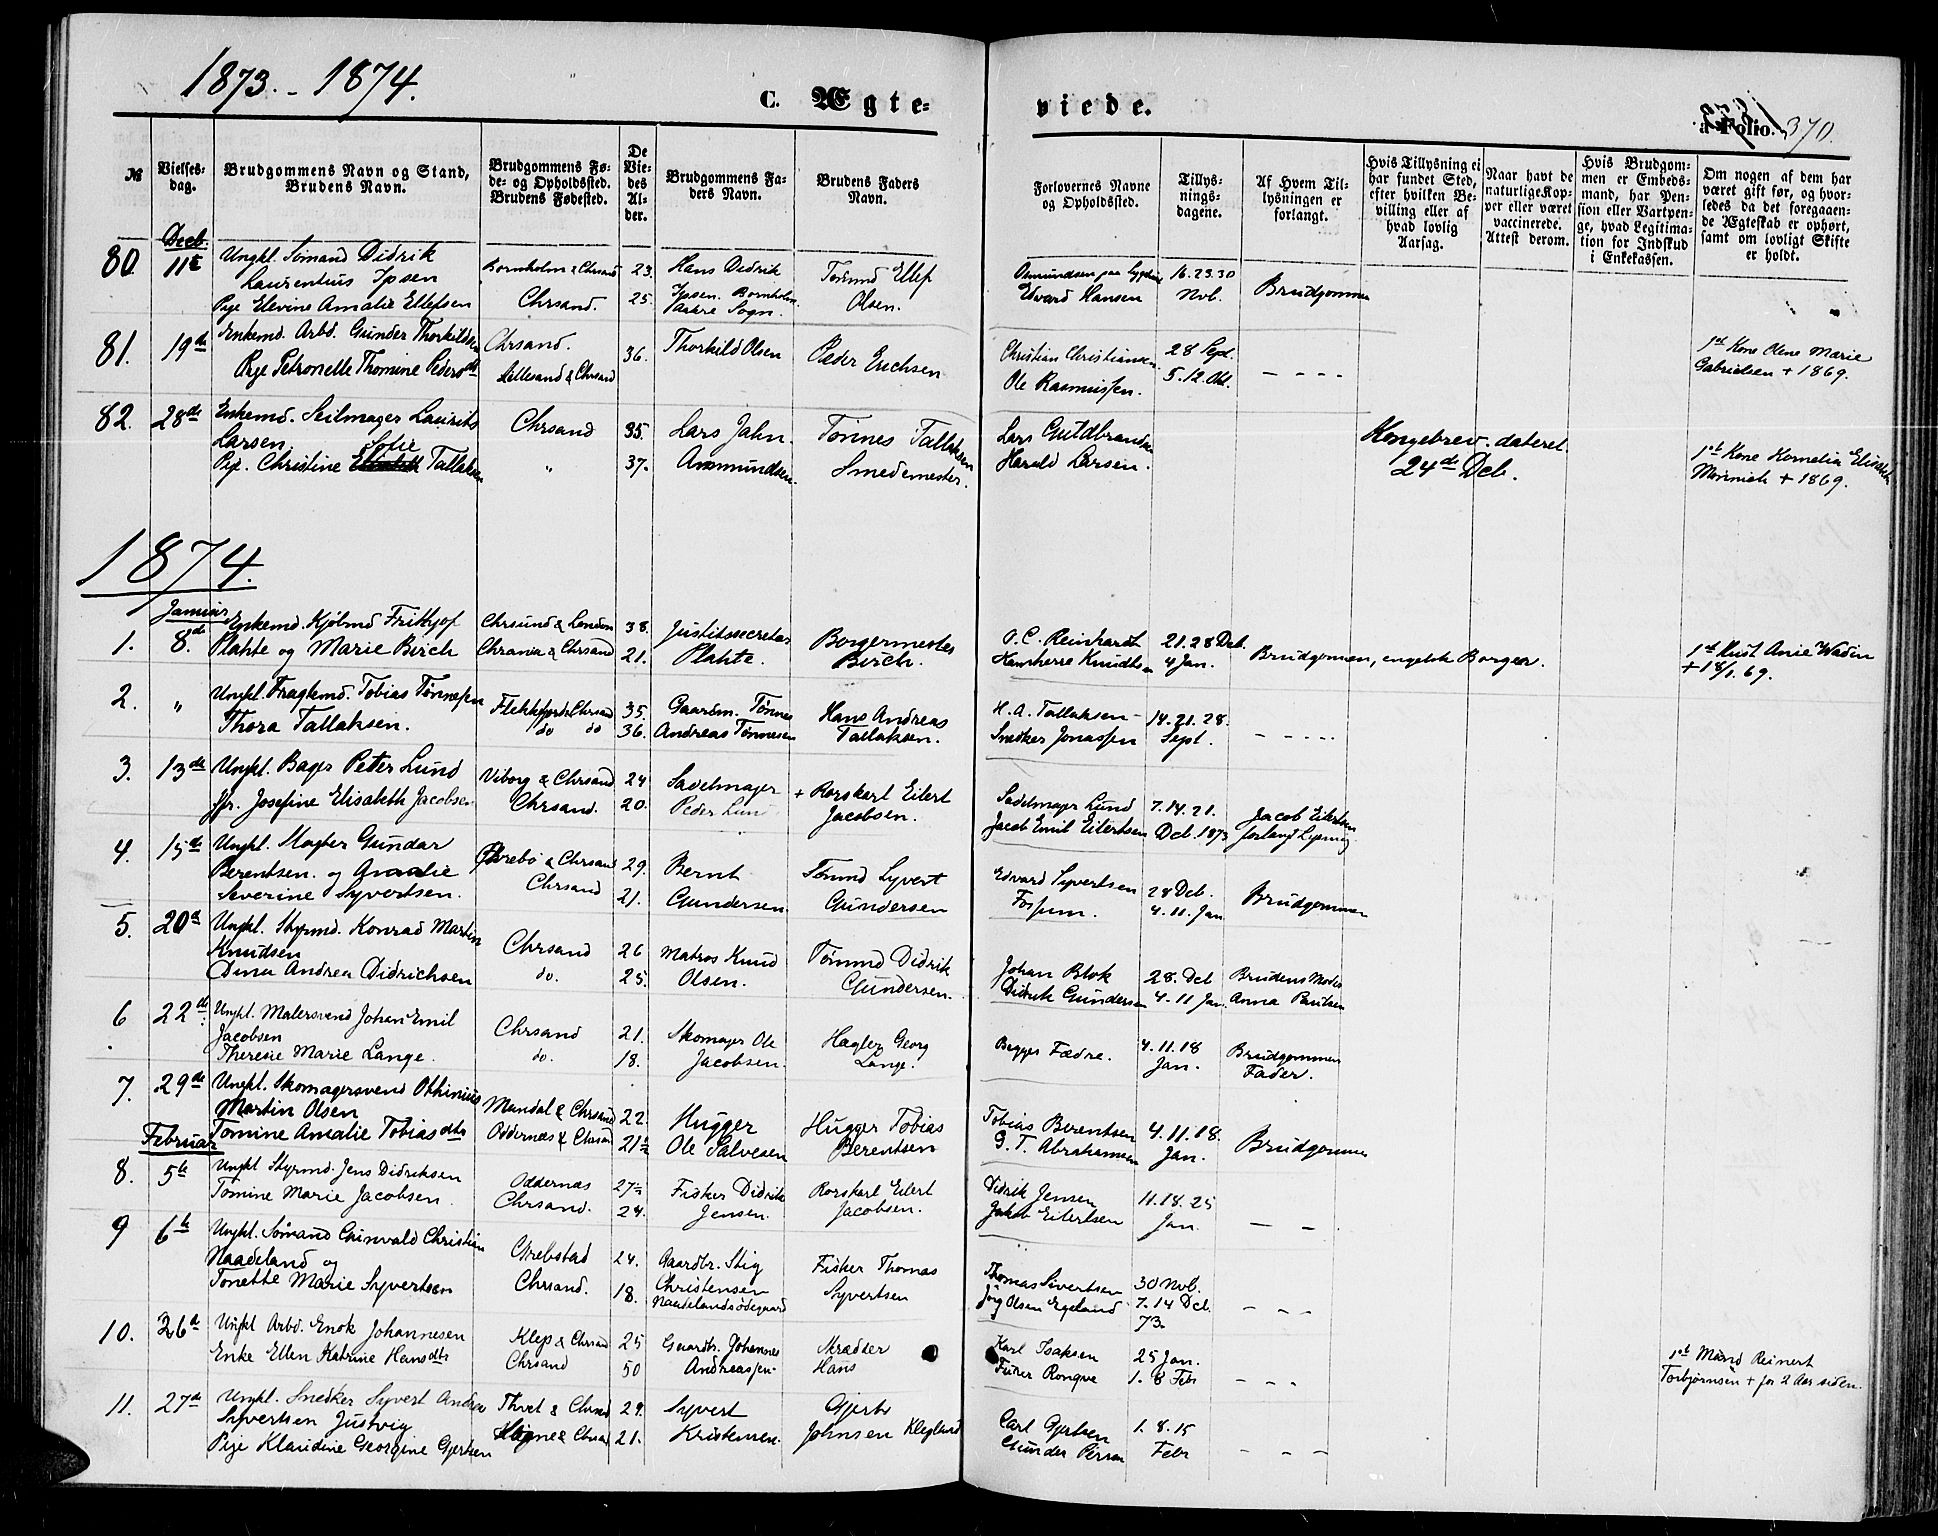 1873.-1874.
C. Ægte-
viede.
a Folio. 370.
№
Vielses-
dag.
Brudgommens Navn og Stand,
Brudens Navn.
Brudgommens Fø-
de- og Opholdssted.
Brudens Fødested.
De
Vie-
des
Al-
der.
Brudgommens Fa-
ders Navn.
Brudens Faders
Navn.
Forlovernes Navne
og Opholdssted.
Tillys-
nings-
dagene.
Af Hvem Til-
lysningen er
forlangt.
Hvis Tillysning ei
har fundet Sted,
efter hvilken Be-
villing eller af
hvad lovlig
Aarsag.
Naar havt de
naturlige Kop-
per eller været
vaccinerede.
Attest derom.
Hvis Brudgom-
men er Embeds-
mand, har Pen-
sion eller Vartpen-
ge, hvad Legitima-
tion for Indskud
i Enkekassen.
Om nogen af dem har
været gift før, og hvor-
ledes da det foregaaen-
de Ægteskab er ophørt,
samt om lovligt Skifte
er holdt.
Decb.
80. 11te Ungkl. Sømand Didrik
Laurentius Ipsen
Pige Elevine Amalie Ellefsen
Bornholm & Chrsand 23.
Chrsand. 25.
Hans Didrik
Ipsen. Bornholm.
Aakre Sogn.
Tømmd Ellef
Olsen.
Edvard Hansen
16.23.30
Nvb.
Brudgommen
81. 19de Enkemd. Arbd. Gunder Thorkildsen
Pige Petronelle Thomine Pedersdtr
Chrsand.
Lillesand & Chrsand
36.
Thorkild Olsen
Peder Erichsen
Christian Christiansen
Ole Rasmussen.
28 Sept.
5.12. Okt.
- - - -
1st Kone Olene Marie
Gabrielsen + 1869.
82. 28de Enkemd. Seilmager Laurits
Larsen.
Sofie
Pige. Christine Tallaksen
Chrsand 35.
" 37.
Lars Jahn.
Ammundsen.
Tønnes Tallaksen
Smedemester.
Lars Guldbrandsen
Harald Larsen.
Kongebrev. dateret.
24de Dcb.
1st Kone Kornelia Elisabeth
+ 1869.
1874.
Januar
1. 8de Enkemd. Kjøbmd Frithjof
Plahte og Marie Birch
Chrsund & London 38.
Chrania & Chrsand 21.
Justitssecretær
Plahte.
Borgermester
Birch.
O. C. Reinhardt
Knudtsen
21.28 Dcb.
4 Jan.
Brudgommen, engelsk Borger.
1st Anie Wadin
+ 18/1.69.
2. " Ungkl. Fragtemd. Tobias Tønnesen
Thora Tallaksen.
Flekkefjord & Chrsand 35.
do do 36.
Gaardm. Tønnes
Andreas Tønnesen
Hans Andreas
Tallaksen.
H. A. Tallaksen -
Snedker Jonassen
14.21.28.
Sept.
- - - - -
3. 13de Ungkl. Bager Peter Lund
Jfr. Josefine Elisabeth Jacobsen
Viborg & Chrsand 24
Chrsand. 20.
Sadelmager
Peder Lund
+ Rorskarl Eilert
Jacobsen.
Sadelmager Lund
Jacob Emil Eilertsen
7.14.21.
Dcb. 1873
Jacob Eilertsen
forlangt Lysning
4. 15de Ungkl. Gundar
Berentsen. og Amalie
Severine Syvertsen.
& Chrsand 29.
Chrsand 21.
Bernt
Gundersen
Tømmd Syvert
Gundersen
Edvard Syvertsen
Fossum.
28 Dcb.
4.11. Jan
Brudgommen
5. 20de Ungkl. Styrmd. Konrad Martin
Knudsen
Dina Andrea Didrichsen
Chrsand 26
do. 25.
Matros Knud
Olsen.
Tømmd Didrik
Gundersen.
Johan Blok
Didrik Gundersen
28. Dcb
4.11 Jan
Brudens Moder
Anna Paulsen
6 22de Ungkl. Malersvend Johan Emil
Jacobsen
Therese Marie Lange.
Chrsand 21.
do. 18.
Skomager Ole
Jacobsen.
Hagler Georg
Lange.
Begges Fædre.
4.11.18
Jan.
Brudgommens
Fader.
7. 29de Ungkl. Skomagersvend Othinius
Martin Olsen
Tomine Amalie Tobiasdtr
Mandal & Chrsand 22.
Oddernæs & Chrsand 21½
Hugger
Ole Salvesen
Hugger Tobias
Berentsen
Tobias Berentsen
G. T. Abrahamsen
4.11.18.
Jan.
Brudgommen
Februar
8. 5te Ungkl Styrmd. Jens Didriksen
Tomine Marie Jacobsen.
Oddernæs 27½
Chrsand. 24.
Fisker Didrik
Jensen.
Rorskarl Eilert
Jacobsen.
Didrik Jensen
Jakob Eilertsen
11.18.25
Jan.
- -
9 6te Ungkl. Sømand Gunvald Christian
Naadeland og
Tonette Marie Syvertsen
Grebstad 24.
Chrsand. 18.
Gaardbr. Stig
Christensen
Naadelandsødegaard
Fisker Thomas
Syvertsen
Thomas Sivertsen
Jørg Olsen Egeland
30 Nvb.
7.14 Dcb.
73.
- - -
10. 26de Ungkl Arbd. Enok Johannesen
Enke Ellen Katrine Hansdtr
Klep & Chrsand 25
Chrsand 50
Gaardbr. Johannes
Andreassen
Skrædder
Hans
Karl Isaksen
Fürer Rongve
25 Jan.
1. 8 Febr
- - -
1st Mand Reinert
Torbjørnsen + for 2 Aar siden.
11. 27de Ungkl. Snedker Syvert Andreas
Syvertsen Justvig
Pige Klaudine Georgine Gjertsen
Thvet & Chrsand 29.
& Chrsand 21.
Syvert
Kristensen.
Gjert
Johnsen Kleplund
Carl Gjertsen
Gunder
1. 8. 15
Febr
- - -